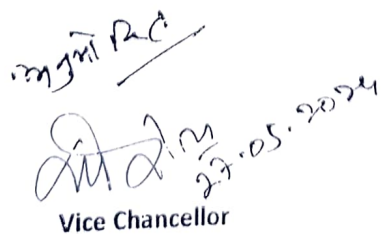 अनुमोदित
27.05.2024
Vice Chancellor